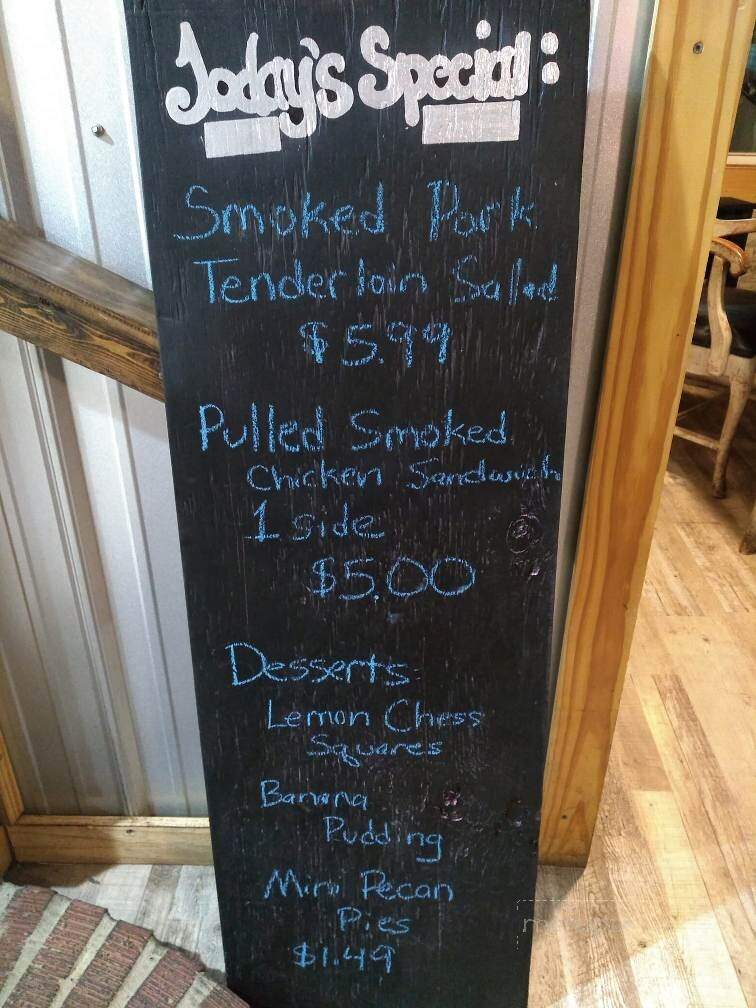 Today's Special:
Smoked Pork
Tenderloin Salad
$5.99
Pulled Smoked
Chicken Sandwich
1 side
$5.00
Desserts:
Lemon Chess
Squares
Banana
Pudding
Mini Pecan
Pies
$1.49